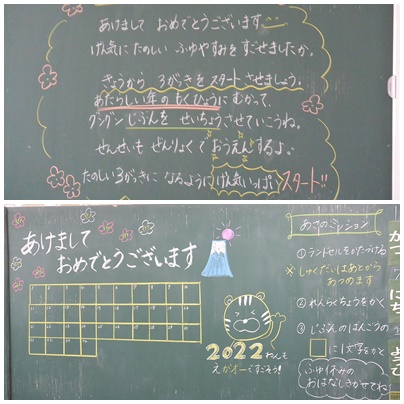 あけまして おめでとうございます
げん気に たのしい ふゆやすみを すごせましたか。
きょうから 3がっきを スタートさせましょう。
あたらしい年の もくひょうに むかって、
グングン じぶんを せいちょうさせていこうね。
せんせいも ぜんりょくで おうえんするよ。
たのしい3がっきに なるように げん気いっぱい スタート!!
あけまして
おめでとうございます
2022 ねんも
えがオーですごそう!
あさのミッション
① ランドセルをかたづける
※ しゅくだいはあとから
あつめます
② れんらくちょうをかく
③ じぶんのばんごうの
に1文字をかく
ふゆ休みの
おはなしきかせてね!